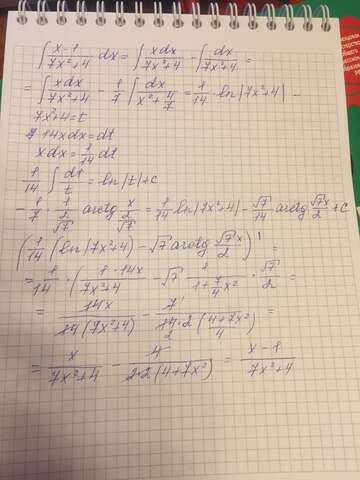 ∫ x-1/7x²+4 dx = ∫ xdx/7x²+4 - ∫ dx/7x²+4 =
= ∫ xdx/7x²+4 - 1/7 ∫ dx/x²+4/7 = 1/14 · ln|7x²+4| -
7x²+4=t
14xdx=dt
xdx=1/14 dt
1/14 ∫ dt/t = ln|t|+c
- 1/7 · 1/(2/√7) arctg x/(2/√7) = 1/14 ln|7x²+4| - √7/14 arctg √7x/2 + C
(1/14 (ln|7x²+4| - √7 arctg √7x/2))' =
= 1/14 · (1·14x/7x²+4 - √7 1/(1+7/4 x²) · √7/2 =
= 14x/14(7x²+4) - 7/14·2(4+7x²/4) =
= x/7x²+4 - 4/2·2(4+7x²) = x-1/7x²+4